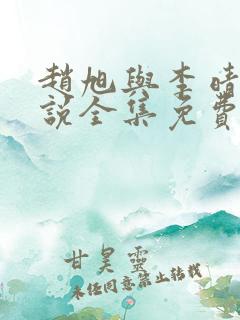 趙旭與李晴
說全集免費
甘昊靈
未经同意禁止转载